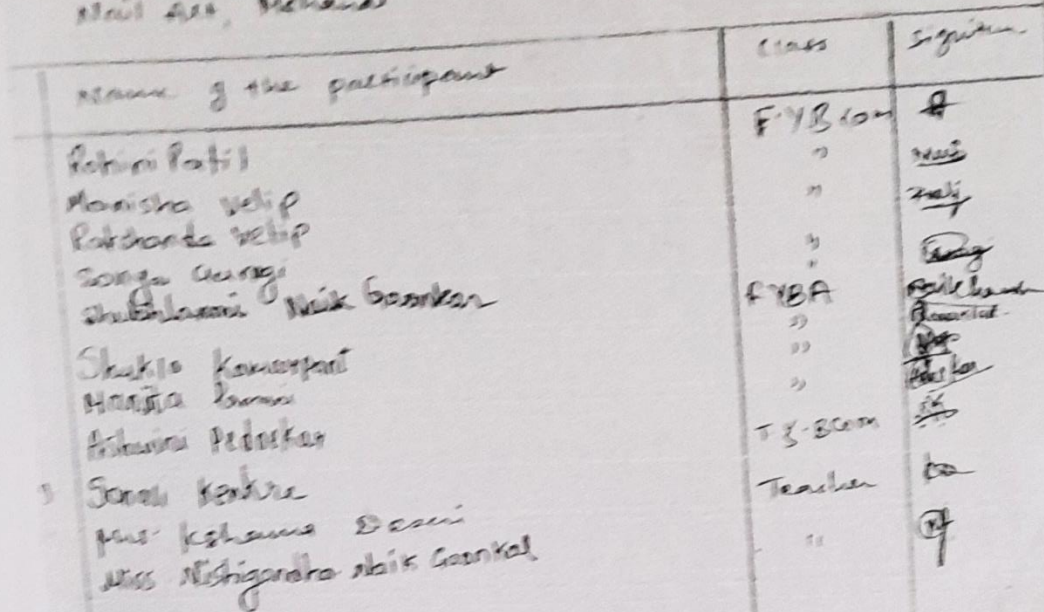 Nail Art, Mehandi
Name of the participant Class Signature
Rohini Patil F.Y.B.com
Manisha Velip "
Rakshanda Velip "
Sonya Gurugi "
Shubhlaxmi Naik Gaonkar FYBA
Shukla Kamarpant "
Harsha "
Ashwini Pednekar "
Sonali Kerkre T.Y.BCom
Mrs. Kshama Desai Teacher
Miss Nishigandha Naik Gaonkar "